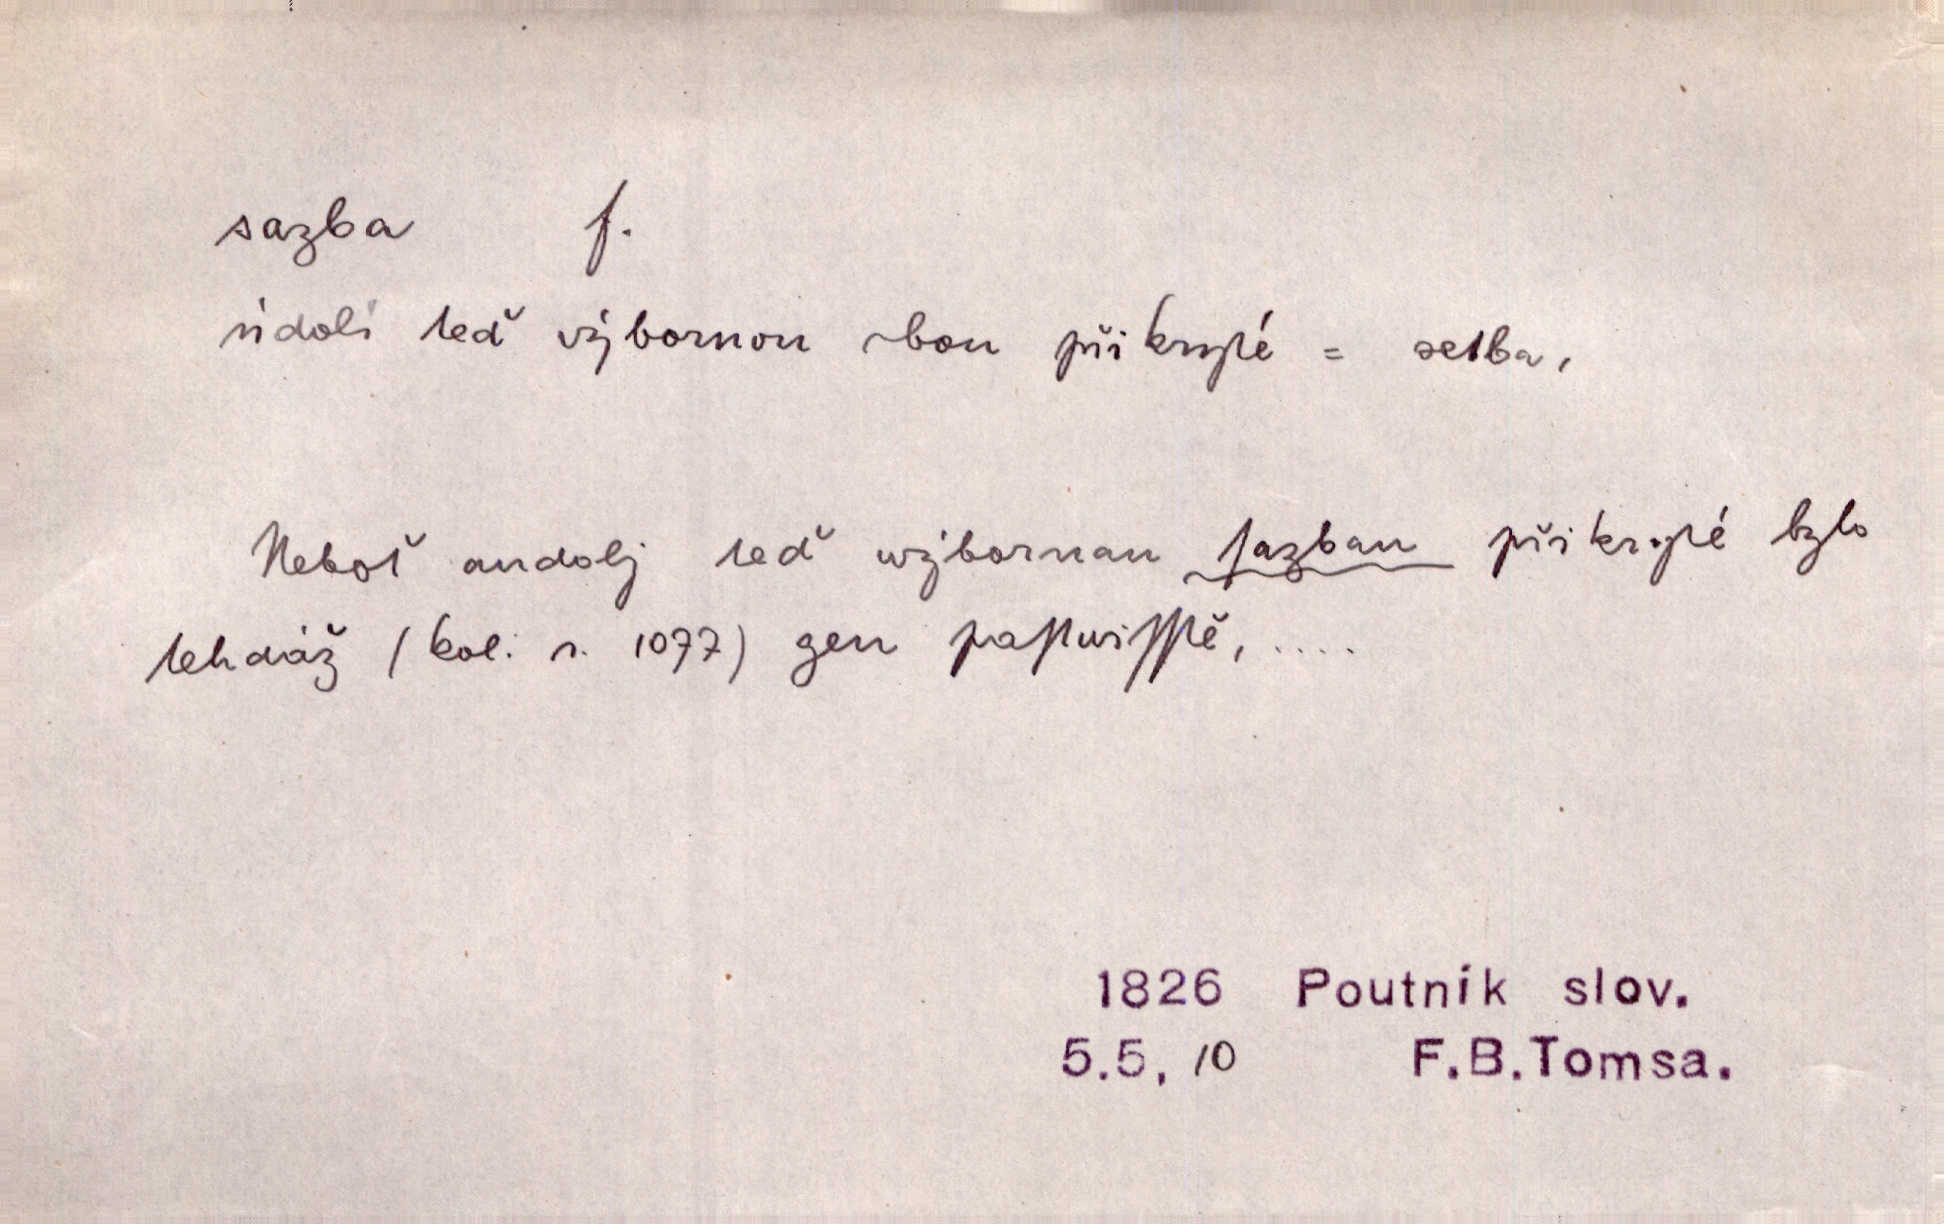 sazba f.
údolí teď výbornou ~bou přikryté = setba,
Neboť audolj teď wýbornau ſazbau přikryté bylo
tehdáž (kol. r. 1077) gen paſtwiſſtě, ....
1826 Poutník slov.
5.5, 10 F.B.Tomsa.